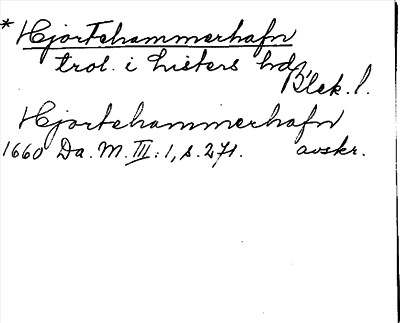 * Hjortehammerhafn
trol. i Listers hd,
Blek. l.
Hjortehammerhafn
1660 Da. M. III: 1, s. 271. avskr.